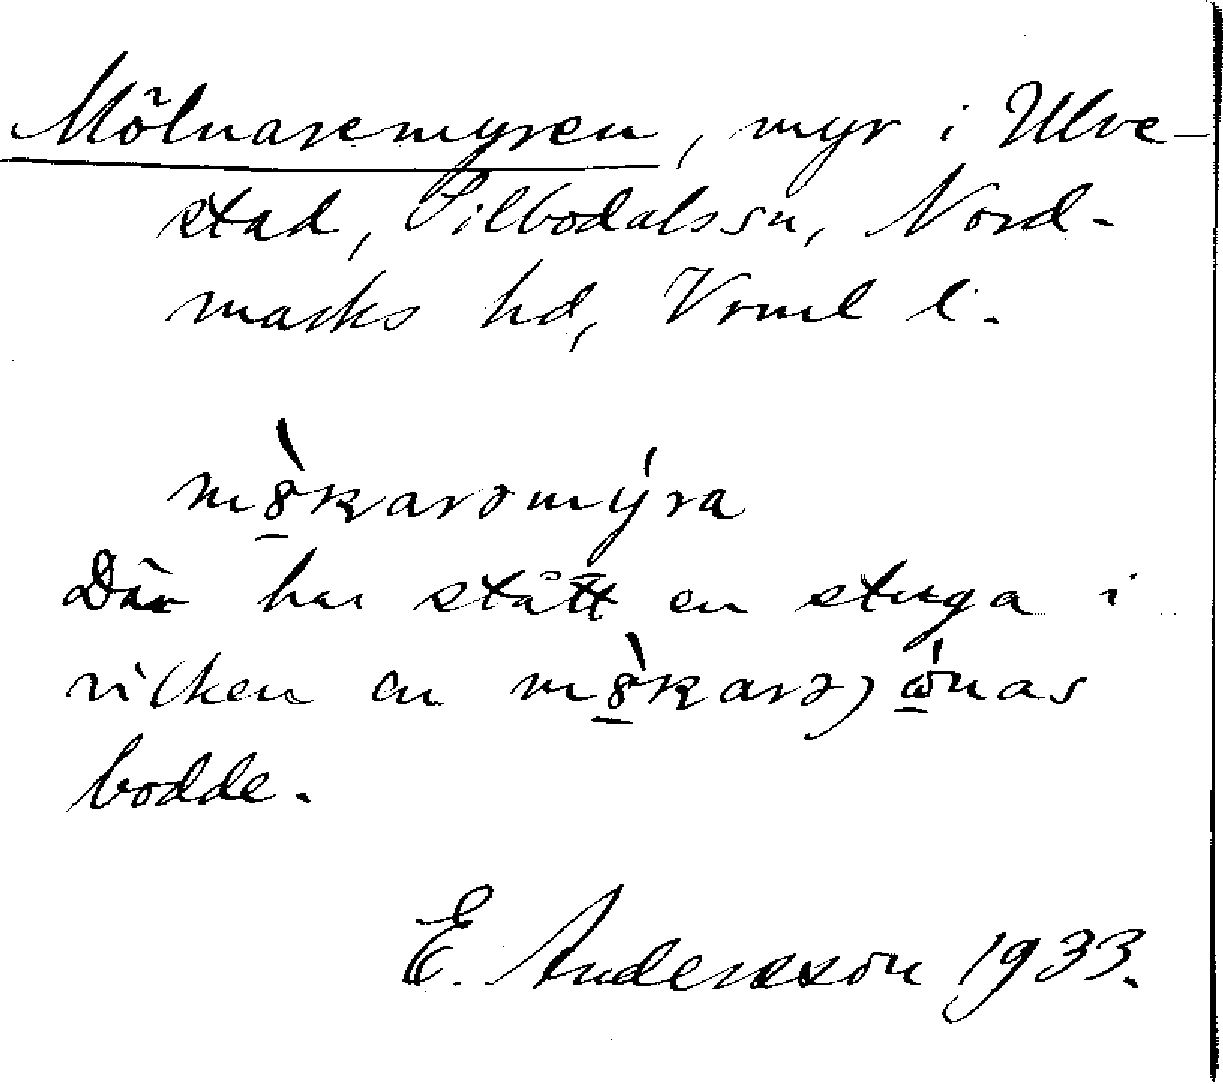 Mölnaremyren, myr i Ulve-
stad, Silbodalssn, Nord-
marks hd, Vrml l.
Där har stått en stuga i
vilken en
bodde.
E. Andersson 1933.